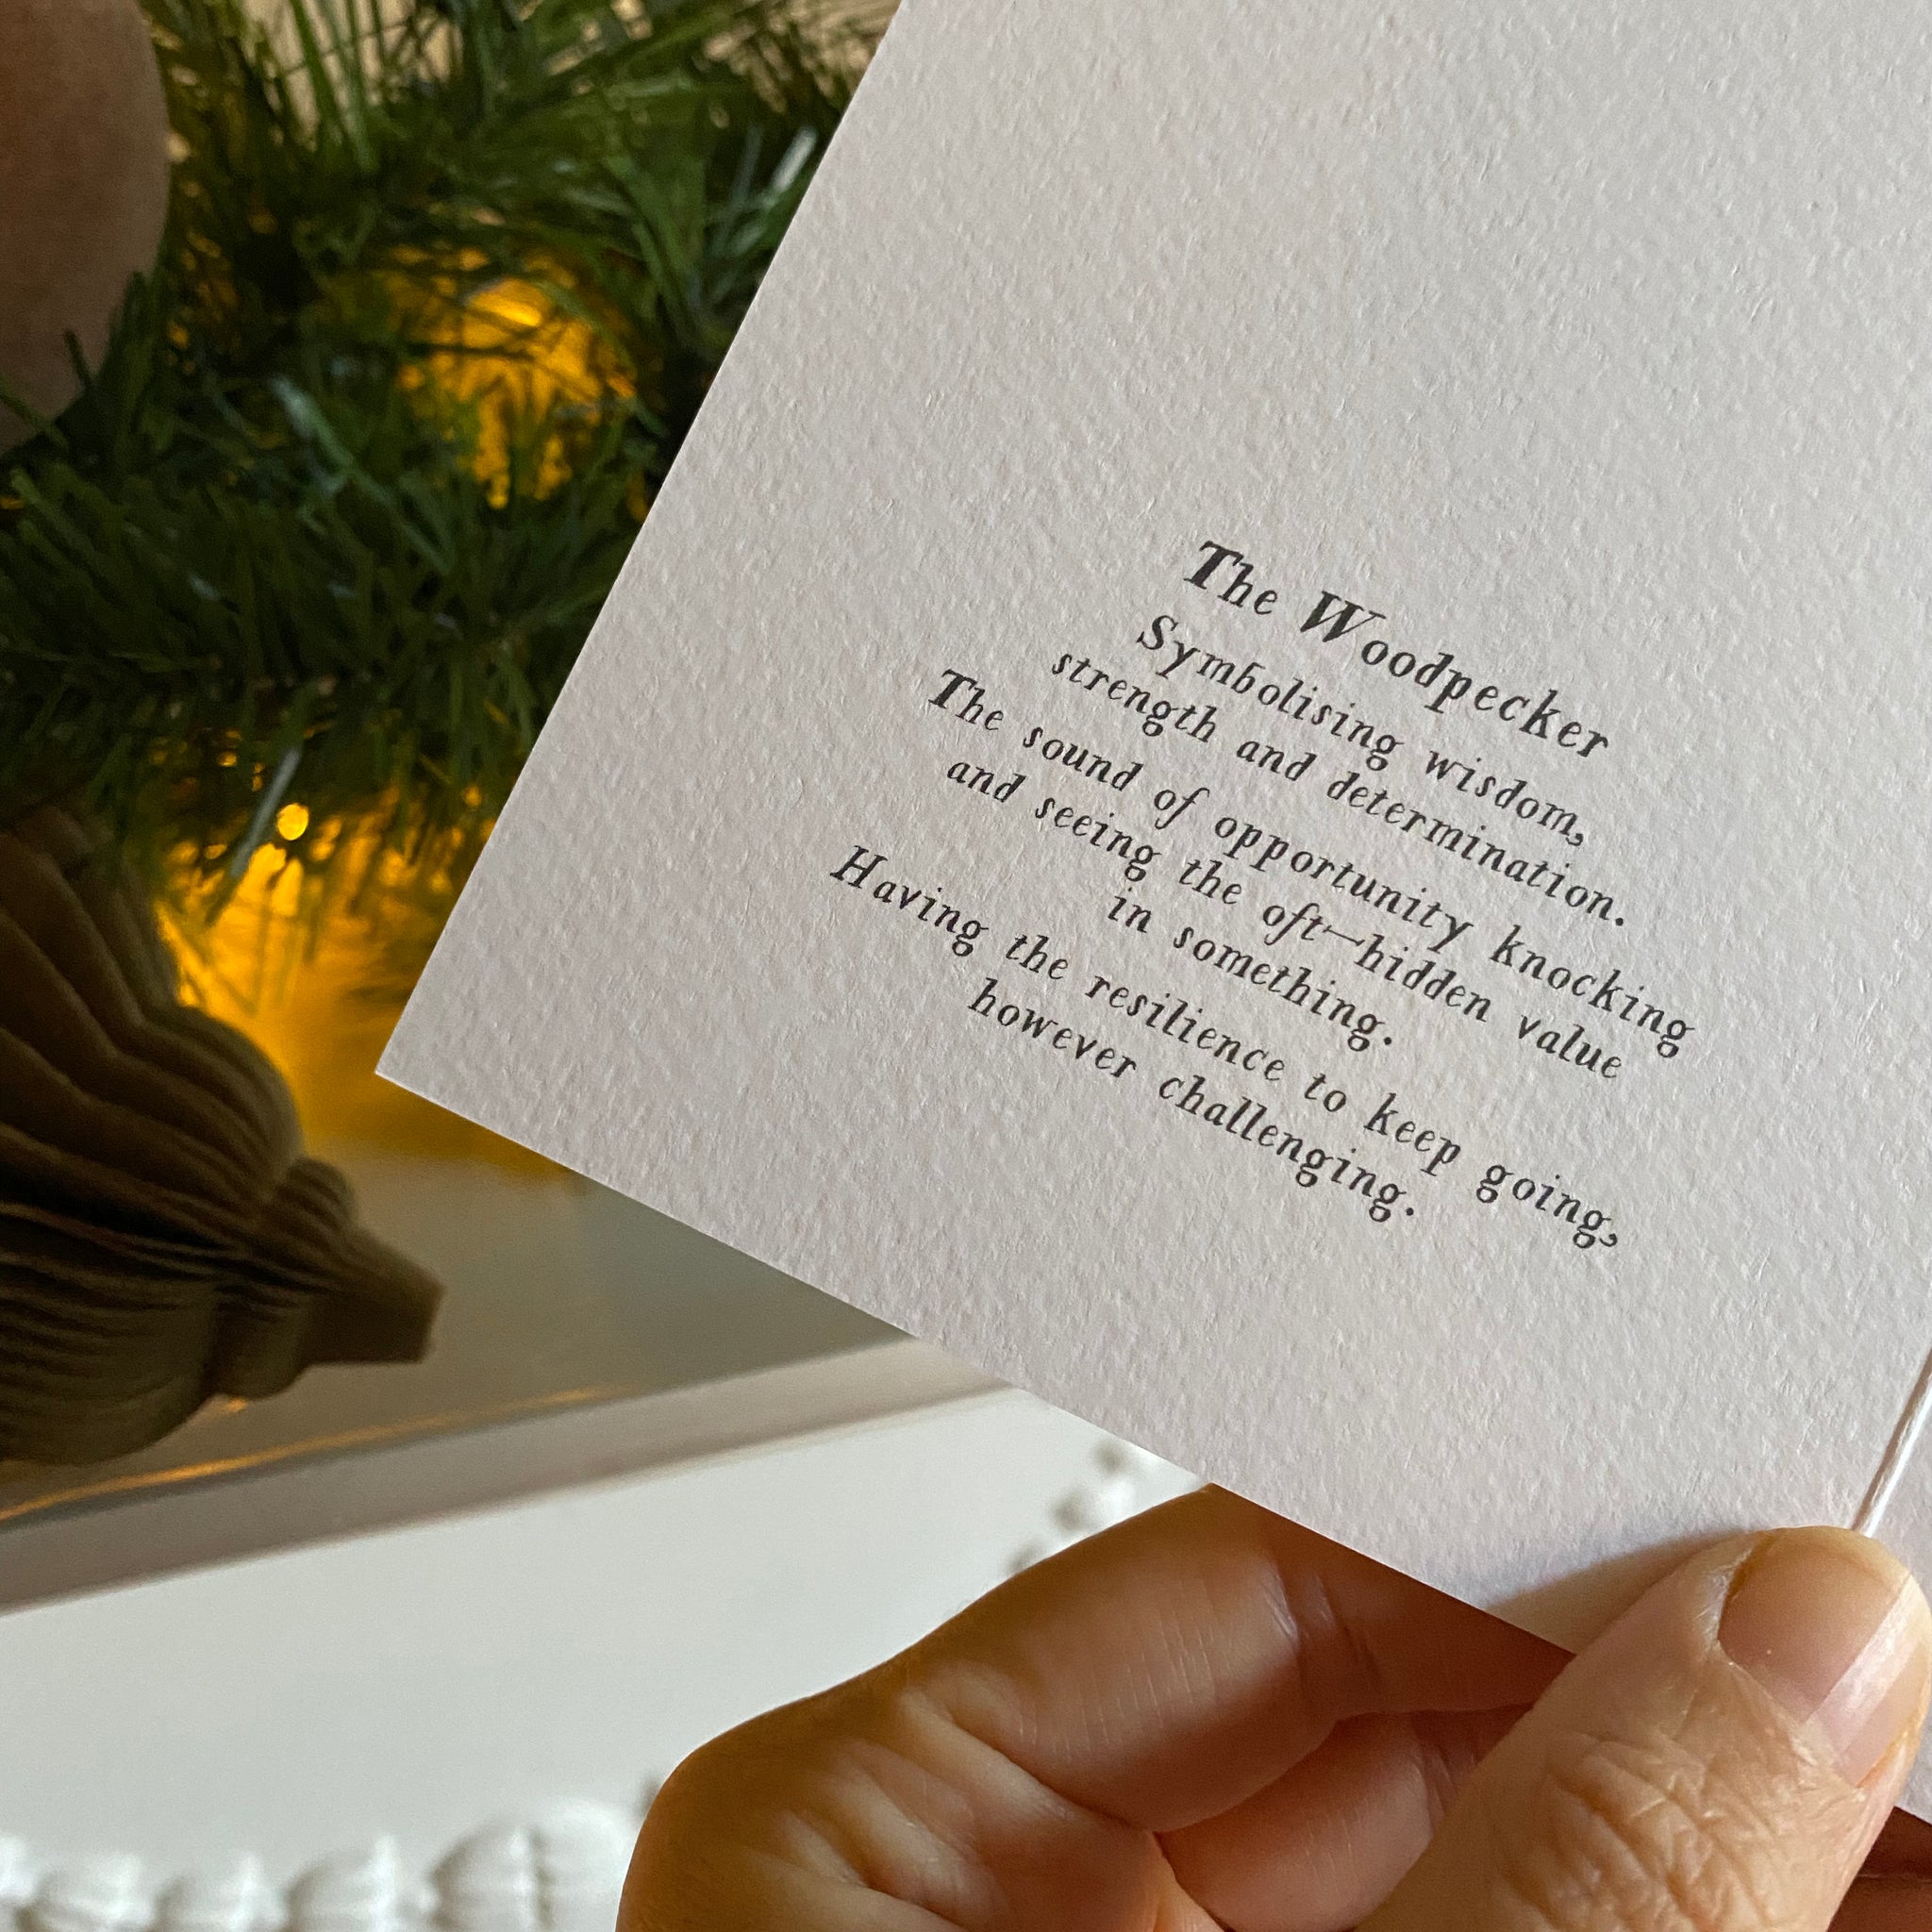 The Woodpecker
Symbolising wisdom,
strength and determination.
The sound of opportunity knocking
and seeing the oft—hidden value
in something.
Having the resilience to keep going,
however challenging.